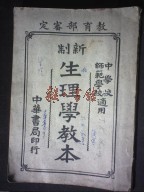 教育部審定
中學校
師範學校適用
新制
生理學教本
中華書局印行